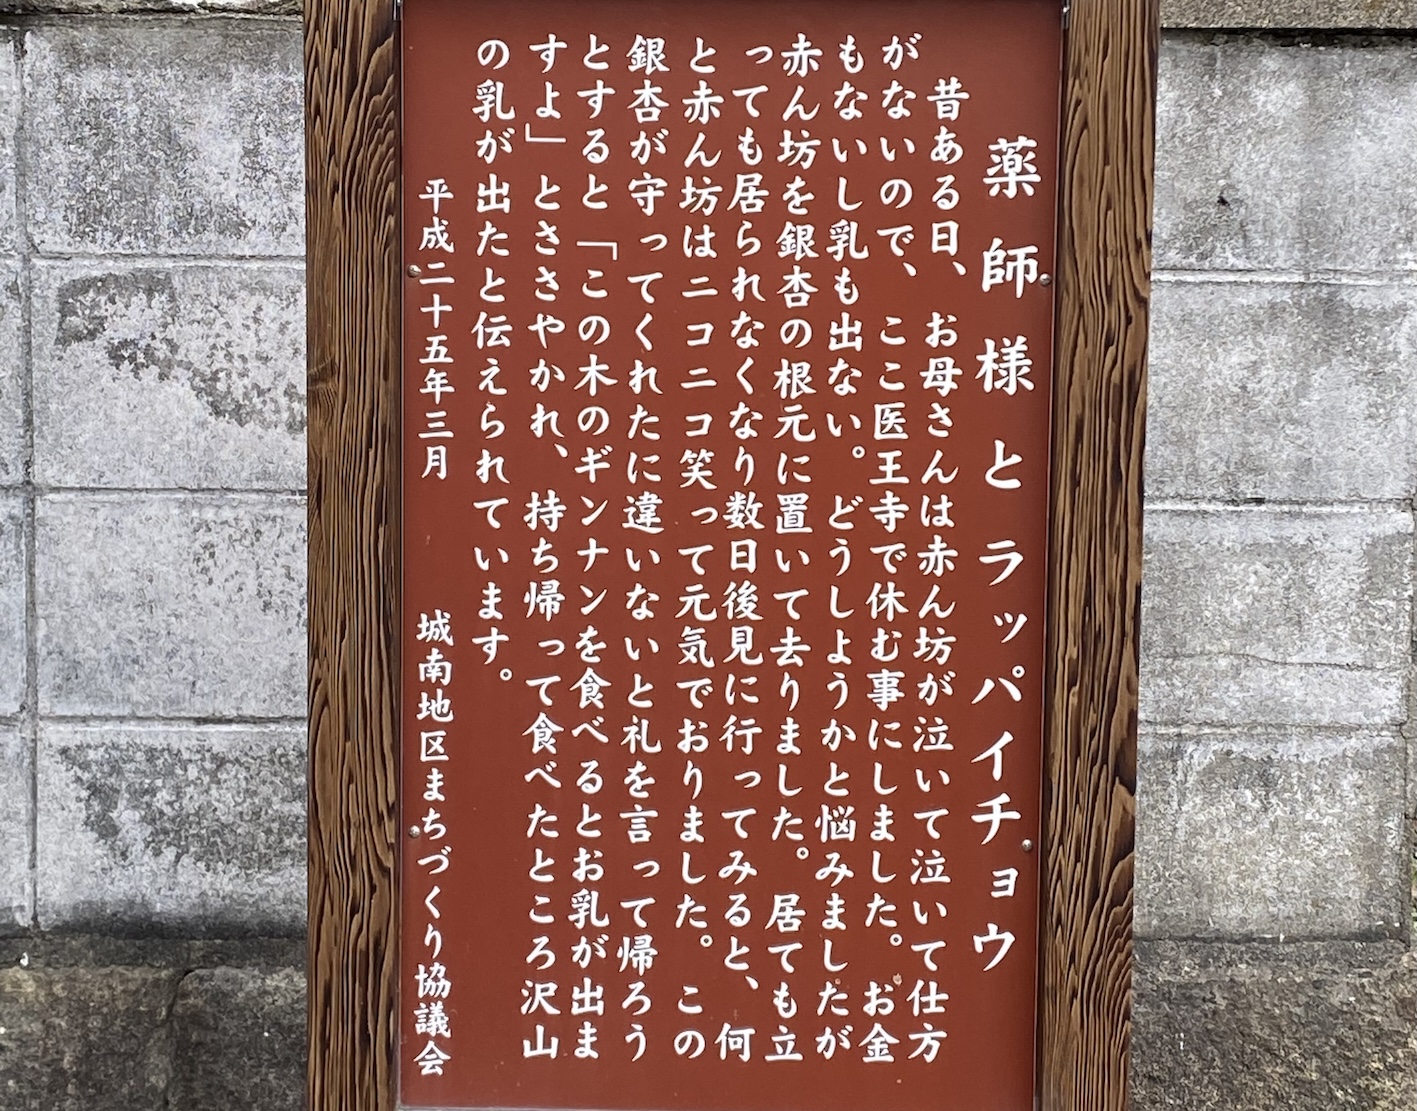 薬師様とラッパイチョウ
昔ある日、お母さんは赤ん坊が泣いて泣いて仕方
がないので、ここ医王寺で休む事にしました。お金
もないし乳も出ない。どうしようかと悩みましたが
赤ん坊を銀杏の根元に置いて去りました。居ても立
っても居られなくなり数日後見に行ってみると、何
と赤ん坊はニコニコ笑って元気でおりました。この
銀杏が守ってくれたに違いないと礼を言って帰ろう
とすると「この木のギンナンを食べるとお乳が出ま
すよ」とささやかれ、持ち帰って食べたところ沢山
の乳が出たと伝えられています。
平成二十五年三月　城南地区まちづくり協議会